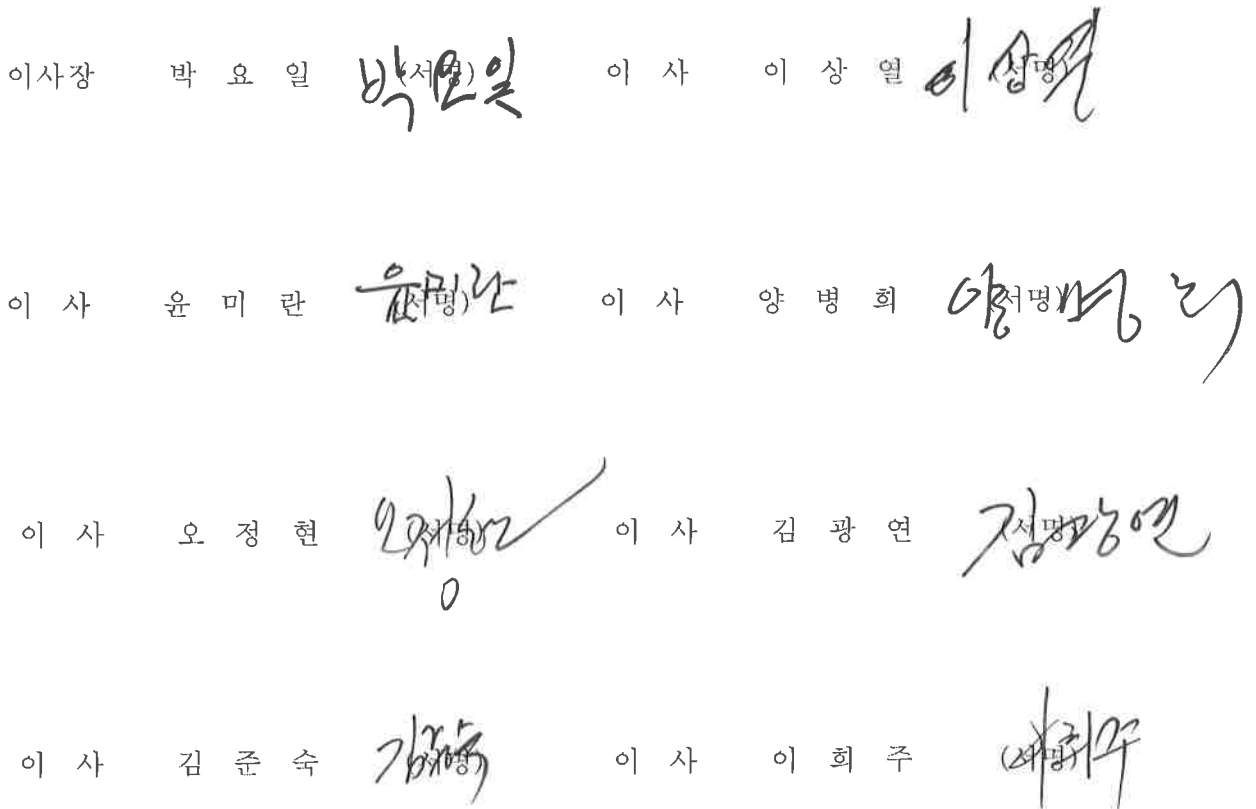 이사장 박 요 일 (서명) 박요일 이 사 이 상 열 (서명) 이상열
이 사 윤 미 란 (서명) 윤미란 이 사 양 병 희 (서명) 양병희
이 사 오 정 현 (서명) 오정현 이 사 김 광 연 (서명) 김광연
이 사 김 준 숙 (서명) 김준숙 이 사 이 희 주 (서명) 이희주